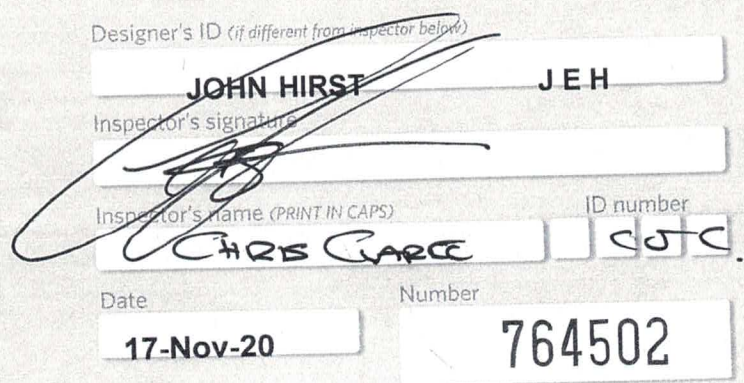 Designer's ID (if different from inspector below)
JOHN HIRST JEH
Inspector's signature
Inspector's name (PRINT IN CAPS) ID number
CHRIS CJC
Date Number
17-Nov-20 764502